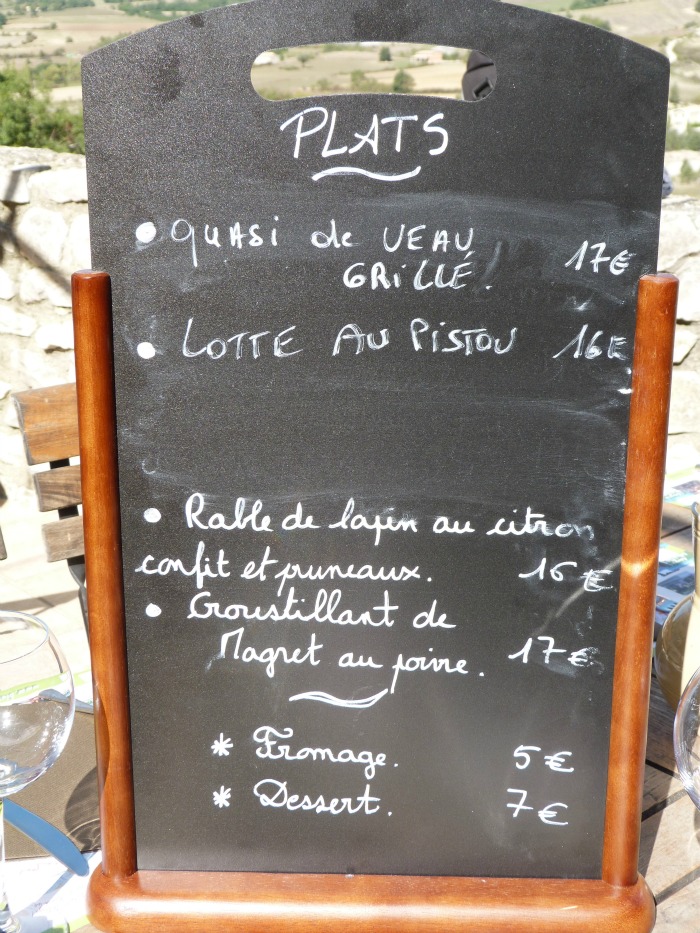 PLATS
• QUASi de VEAU
GRiLLÉ. 17€
• LOTTE AU PiSTOU 16€
• Rable de lapin au citron
confit et pruneaux. 16€
• Croustillant de
Magret au poivre. 17€
* Fromage. 5€
* Dessert. 7€